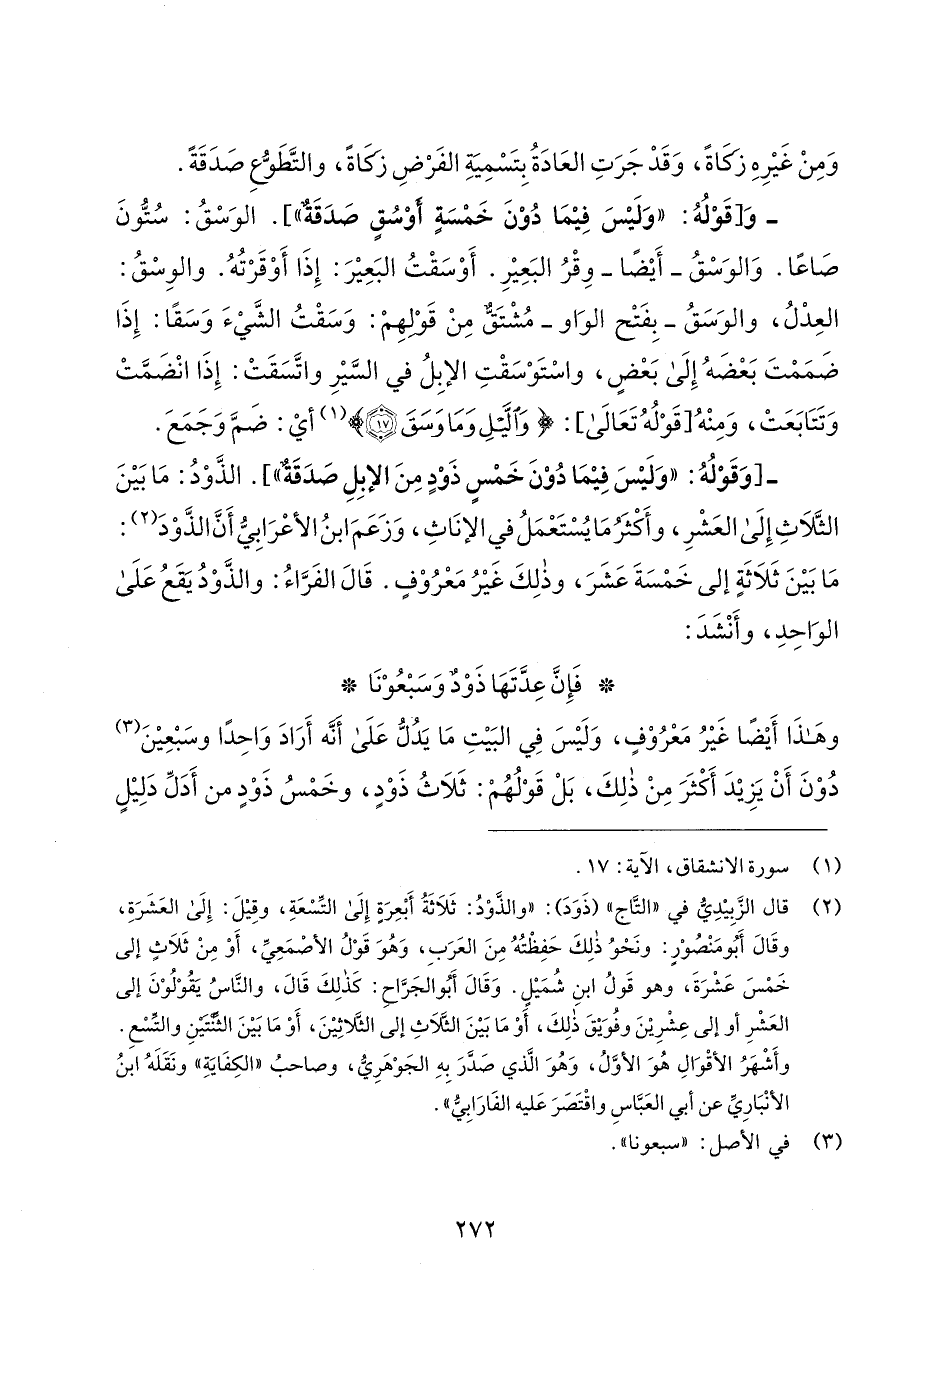 وَمِنْ غَيْرِهِ زكَاةً، وَقَدْ جَرَتِ العَادَةُ بِتَسْمِيَةِ الفَرْضِ زكَاةً، والتَّطَوُّعِ صَدَقَةً.
ـ وَ[قَوْلُهُ: «وَلَيْسَ فِيْمَا دُوْنَ خَمْسَةِ أَوْسُقٍ صَدَقَةٌ»]. الوَسْقُ: سُتُّونَ
صَاعًا. وَالوَسْقُ ـ أَيْضًا ـ وِقْرُ البَعِيْرِ. أَوْسَقْتُ البَعِيْرَ: إِذَا أَوْقَرْتُهُ. والوِسْقُ:
العِدْلُ، والوَسَقُ ـ بِفَتْحِ الوَاوِ ـ مُشْتَقٌّ مِنْ قَوْلِهِمْ: وَسَقْتُ الشَّيْءَ وَسَقًا: إِذَا
ضَمَمْتَ بَعْضَهُ إِلَىٰ بَعْضٍ، واسْتَوْسَقْتِ الإبِلُ في السَّيْرِ واتَّسَقَتْ: إِذَا انْضَمَّتْ
وَتَتَابَعَتْ، وَمِنْهُ [قَوْلُهُ تَعَالَىٰ]: ﴿وَٱلَّيْلِ وَمَا وَسَقَ ۝١٧﴾(١) أيْ: ضَمَّ وَجَمَعَ.
ـ [وَقَوْلُهُ: «وَلَيْسَ فِيْمَا دُوْنَ خَمْسِ ذَوْدٍ مِنَ الإبِلِ صَدَقَةٌ»]. الذَّوْدُ: مَا بَيْنَ
الثَّلَاثِ إِلَىٰ العَشْرِ، وأَكْثَرُ مَا يُسْتَعْمَلُ في الإنَاثِ، وَزَعَمَ ابنُ الأعْرَابِيُّ أَنَّ الذَّوْدَ(٢):
مَا بَيْنَ ثَلَاثَةٍ إلى خَمْسَةَ عَشَرَ، وذٰلِكَ غَيْرُ مَعْرُوْفٍ. قَالَ الفَرَّاءُ: والذَّوْدُ يَقَعُ عَلَىٰ
الوَاحِدِ، وأَنْشَدَ:
* فَإِنَّ عِدَّتَهَا ذَوْدٌ وَسَبْعُوْنَا *
وهَـٰذَا أَيْضًا غَيْرُ مَعْرُوْفٍ، وَلَيْسَ فِي البَيْتِ مَا يَدُلُّ عَلَىٰ أَنَّه أَرَادَ وَاحِدًا وسَبْعِيْنَ(٣)
دُوْنَ أَنْ يَزِيْدَ أَكْثَرَ مِنْ ذٰلِكَ، بَلْ قَوْلُهُمْ: ثَلَاثُ ذَوْدٍ، وخَمْسُ ذَوْدٍ من أَدَلِّ دَلِيْلٍ
(١) سورة الانشقاق، الآية: ١٧.
(٢) قال الزَّبِيْدِيُّ في «التَّاجِ» (ذَوَدَ): «والذَّوْدُ: ثَلَاثَةُ أَبْعِرَةٍ إِلَىٰ التِّسْعَةِ، وقِيْلَ: إِلَىٰ العَشَرَةِ،
وقَالَ أَبُو مَنْصُوْرٍ: ونَحْوُ ذٰلِكَ حَفِظْتُهُ مِنَ العَرَبِ، وَهُوَ قَوْلُ الأصْمَعِيِّ، أَوْ مِنْ ثَلَاثٍ إلى
خَمْسَ عَشْرَةَ، وهو قَولُ ابنِ شُمَيْلٍ. وَقَالَ أَبُو الجَرَّاحِ: كَذٰلِكَ قَالَ، والنَّاسُ يَقُولُوْنَ إلى
العَشْرِ أو إلى عِشْرِيْنَ وفُوَيْقَ ذٰلِكَ، أَوْ مَا بَيْنَ الثَّلَاثِ إلى الثَّلَاثِيْنَ، أَوْ مَا بَيْنَ الثِّنْتَيْنِ والتِّسْعِ.
وأَشْهَرُ الأقْوَالِ هُوَ الأوَّلُ، وَهُوَ الَّذي صَدَّرَ بِهِ الجَوْهَرِيُّ، وصاحبُ «الكِفَايَةِ» ونَقَلَهُ ابنُ
الأنْبَارِيِّ عن أبي العَبَّاسِ واقْتَصَرَ عَليه الفَارَابِيُّ».
(٣) في الأصل: «سبعونا».
٢٧٢